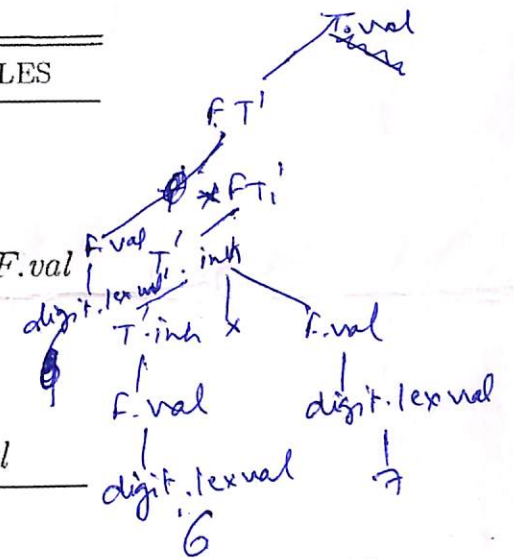 T.val
LES
F T'
* F T₁'
F.val
F.val
T'.inh
digit.lexval
T'.inh * F.val
F.val digit.lexval
l
digit.lexval 7
6